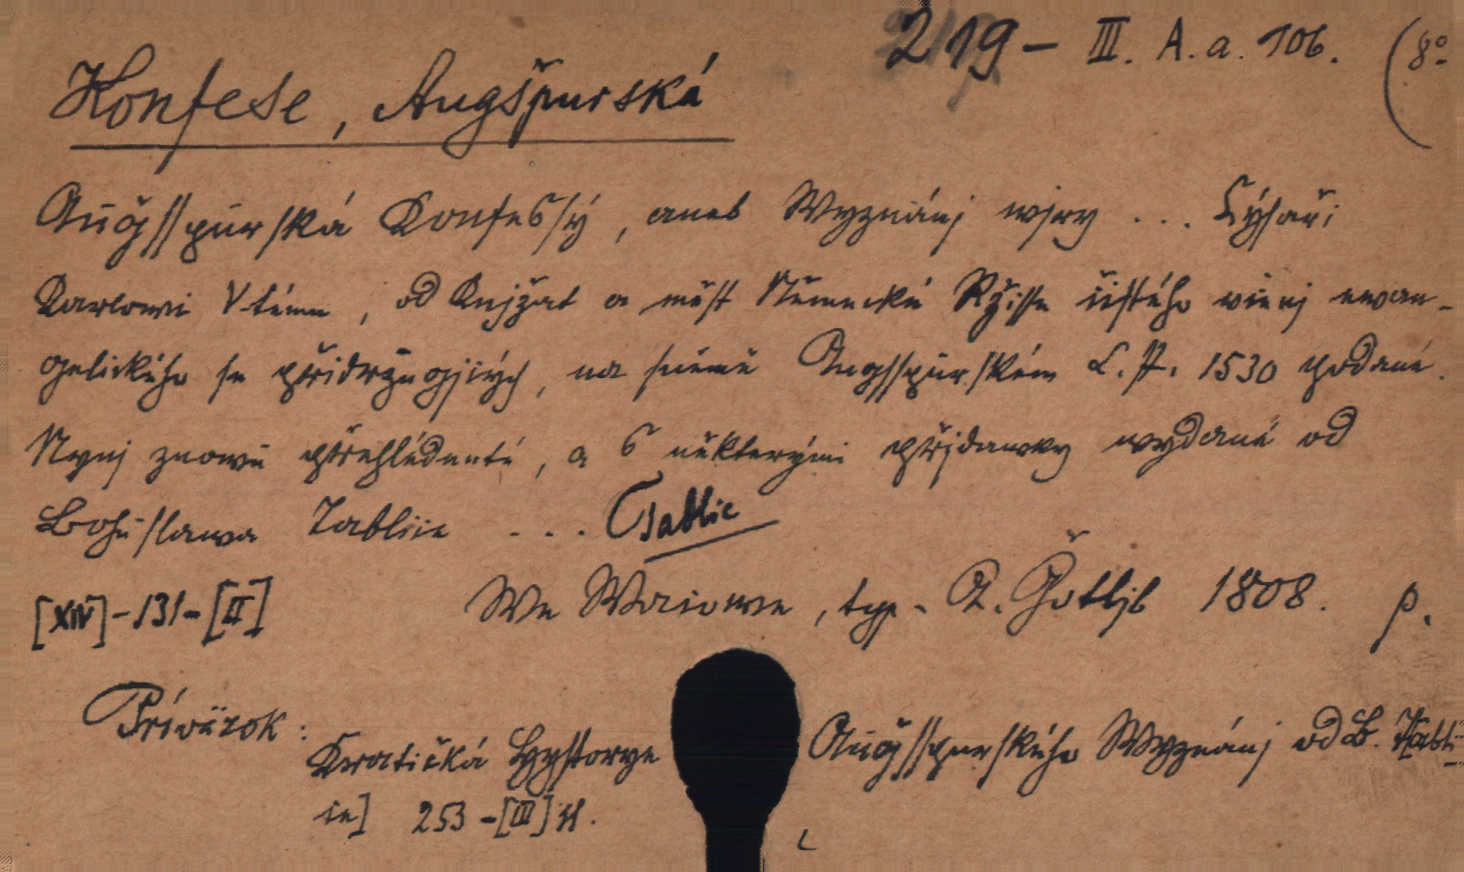 219 - III. A. a. 106. (8°
Konfese, Augšpurská
Augšſſpurſká Konfesſý, aneb Wyznánj wjry ... Cýsaři
Karlowi V-tému, od Knjžat a měst Německé Ržisse čistého včenj ewan-
gelického se přidržugjcých, na sněmě Augsſpurſkém L. P. 1530 podané.
Nynj znowu přehlédnuté, a s některými přjdawky wydané od
Bohuslawa Tablice ... Tablic
[XIV] - 131 - [II] We Wacowe, typ. A. Gotljb 1808. p.
Príväzok:
Kratičká Hystorye Augšſſpurſkého Wyznánj od B. Tabli-
ce] 253 - [III] s.